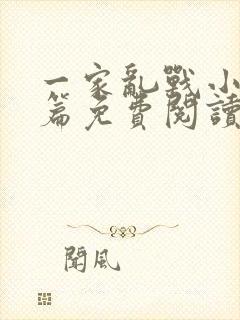 一家亂戰小
篇免費閱讀
聞風